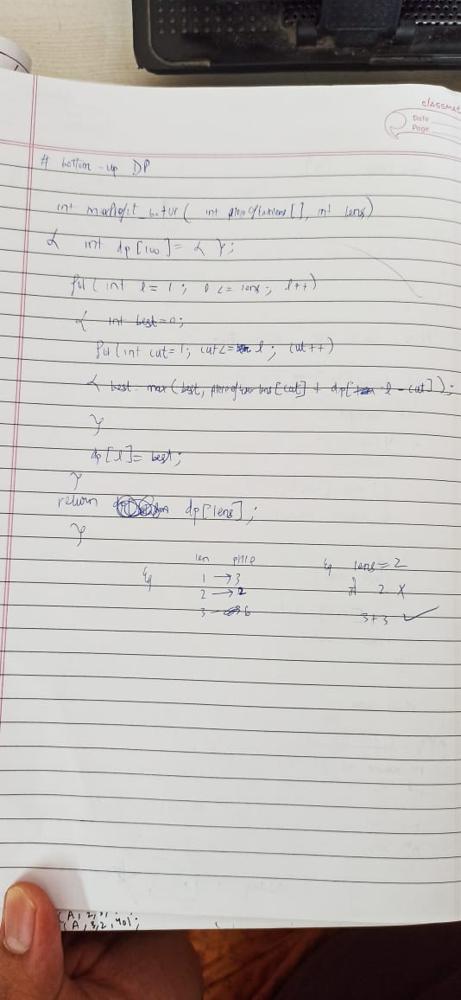 classmate
Date
Page
# bottom-up DP
int maxProfit botup ( int priceofLenlens[], int lens)
{ int dp[100] = { };
for (int l = 1; l <= lens; l++)
{ int best = 0;
for (int cut = 1; cut <= l; cut++)
{ best = max (best, lens[cut] + dp[l - cut]);
}
dp[l] = best;
}
return dp[lens];
}
len price
Eg 1 → 3
2 → 2
3 → 6
Eg lens = 2
2 X
3+3 ✓
(A, 2,
(A, 3,2, 40);